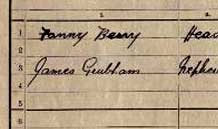 1.
1 Fanny Berry Head
2
3 James Grubham Nephew
4
5
6